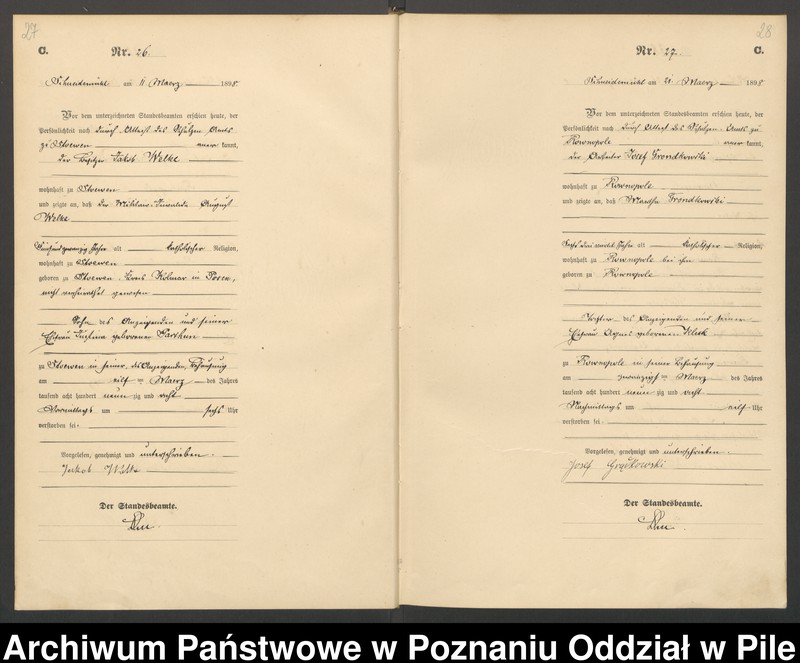 27
C.
Nr. 26.
Schneidemühl am 11 Maerz 1898
Vor dem unterzeichneten Standesbeamten erschien heute, der
Persönlichkeit nach durch Attest des Schulzen Amts
zu Stoewen aner kannt,
der Besitzer Jakob Welke
wohnhaft zu Stoewen
und zeigte an, daß der Militair-Invalide August
Welke
alt katholischer Religion,
wohnhaft zu Stoewen
geboren zu Stoewen, Kreis Kolmar in Posen,
nicht verheirathet gewesen
Sohn des Anzeigenden und seiner
Ehefrau Justina geborenen
zu Stoewen in seiner, des Anzeigenden, Behausung
am elf ten Maerz des Jahres
tausend acht hundert neun zig und acht
Vormittags um sechs Uhr
verstorben sei.
Vorgelesen, genehmigt und unterschrieben.
Jakob
Der Standesbeamte.
28
C.
Nr. 27.
Schneidemühl am 21 Maerz 1898
Vor dem unterzeichneten Standesbeamten erschien heute, der
Persönlichkeit nach durch Attest des Schulzen-Amts zu
Rownopole aner kannt,
der Arbeiter Josef
wohnhaft zu Rownopole
und zeigte an, daß Martha
Sechs drei Jahr alt katholischer Religion,
wohnhaft zu Rownopole bei ihm
geboren zu Rownopole
Tochter des Anzeigenden und seiner
Ehefrau Agnes geborenen Klück
zu Rownopole in seiner Behausung
am zwanzigst en Maerz des Jahres
tausend acht hundert neun zig und acht
Nachmittags um elf Uhr
verstorben sei
Vorgelesen, genehmigt und unterschrieben.
Josef
Der Standesbeamte.
Archiwum Państwowe w Poznaniu Oddział w Pile